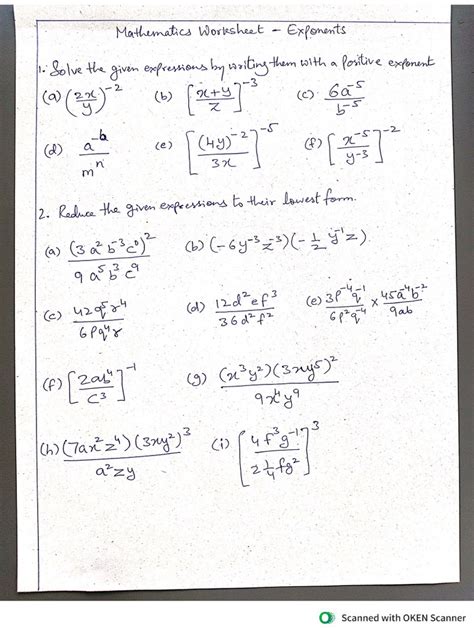 Mathematics Worksheet - Exponents
1. Solve the given expressions by writing them with a positive exponent
(a) (2x/y)^-2 (b) [x+y/z]^-3 (c) 6a^-5/b^-5
(d) a^-b/m^n (e) [(4y)^-2/3x]^-5 (f) [x^-5/y^-3]^-2
2. Reduce the given expressions to their lowest form.
(a) (3a^2 b^-3 c^0)^2/9a^5 b^3 c^9 (b) (-6y^-3 z^-3)(-1/2 y^-1 z)
(c) 42q^5 r^4/6pq^4 r (d) 12d^2 e f^3/36d^2 f^2 (e) 3p^-4 q^-1/6p^2 q^-4 × 45a^-4 b^-2/9ab
(f) [2ab^4/c^3]^-1 (g) (x^3 y^2)(3xy^5)^2/9x^4 y^9
(h) (7ax^2 z^4)(3xy^2)^3/a^2 zy (i) [4f^3 g^-1/2 1/4 fg^2]^3
Scanned with OKEN Scanner